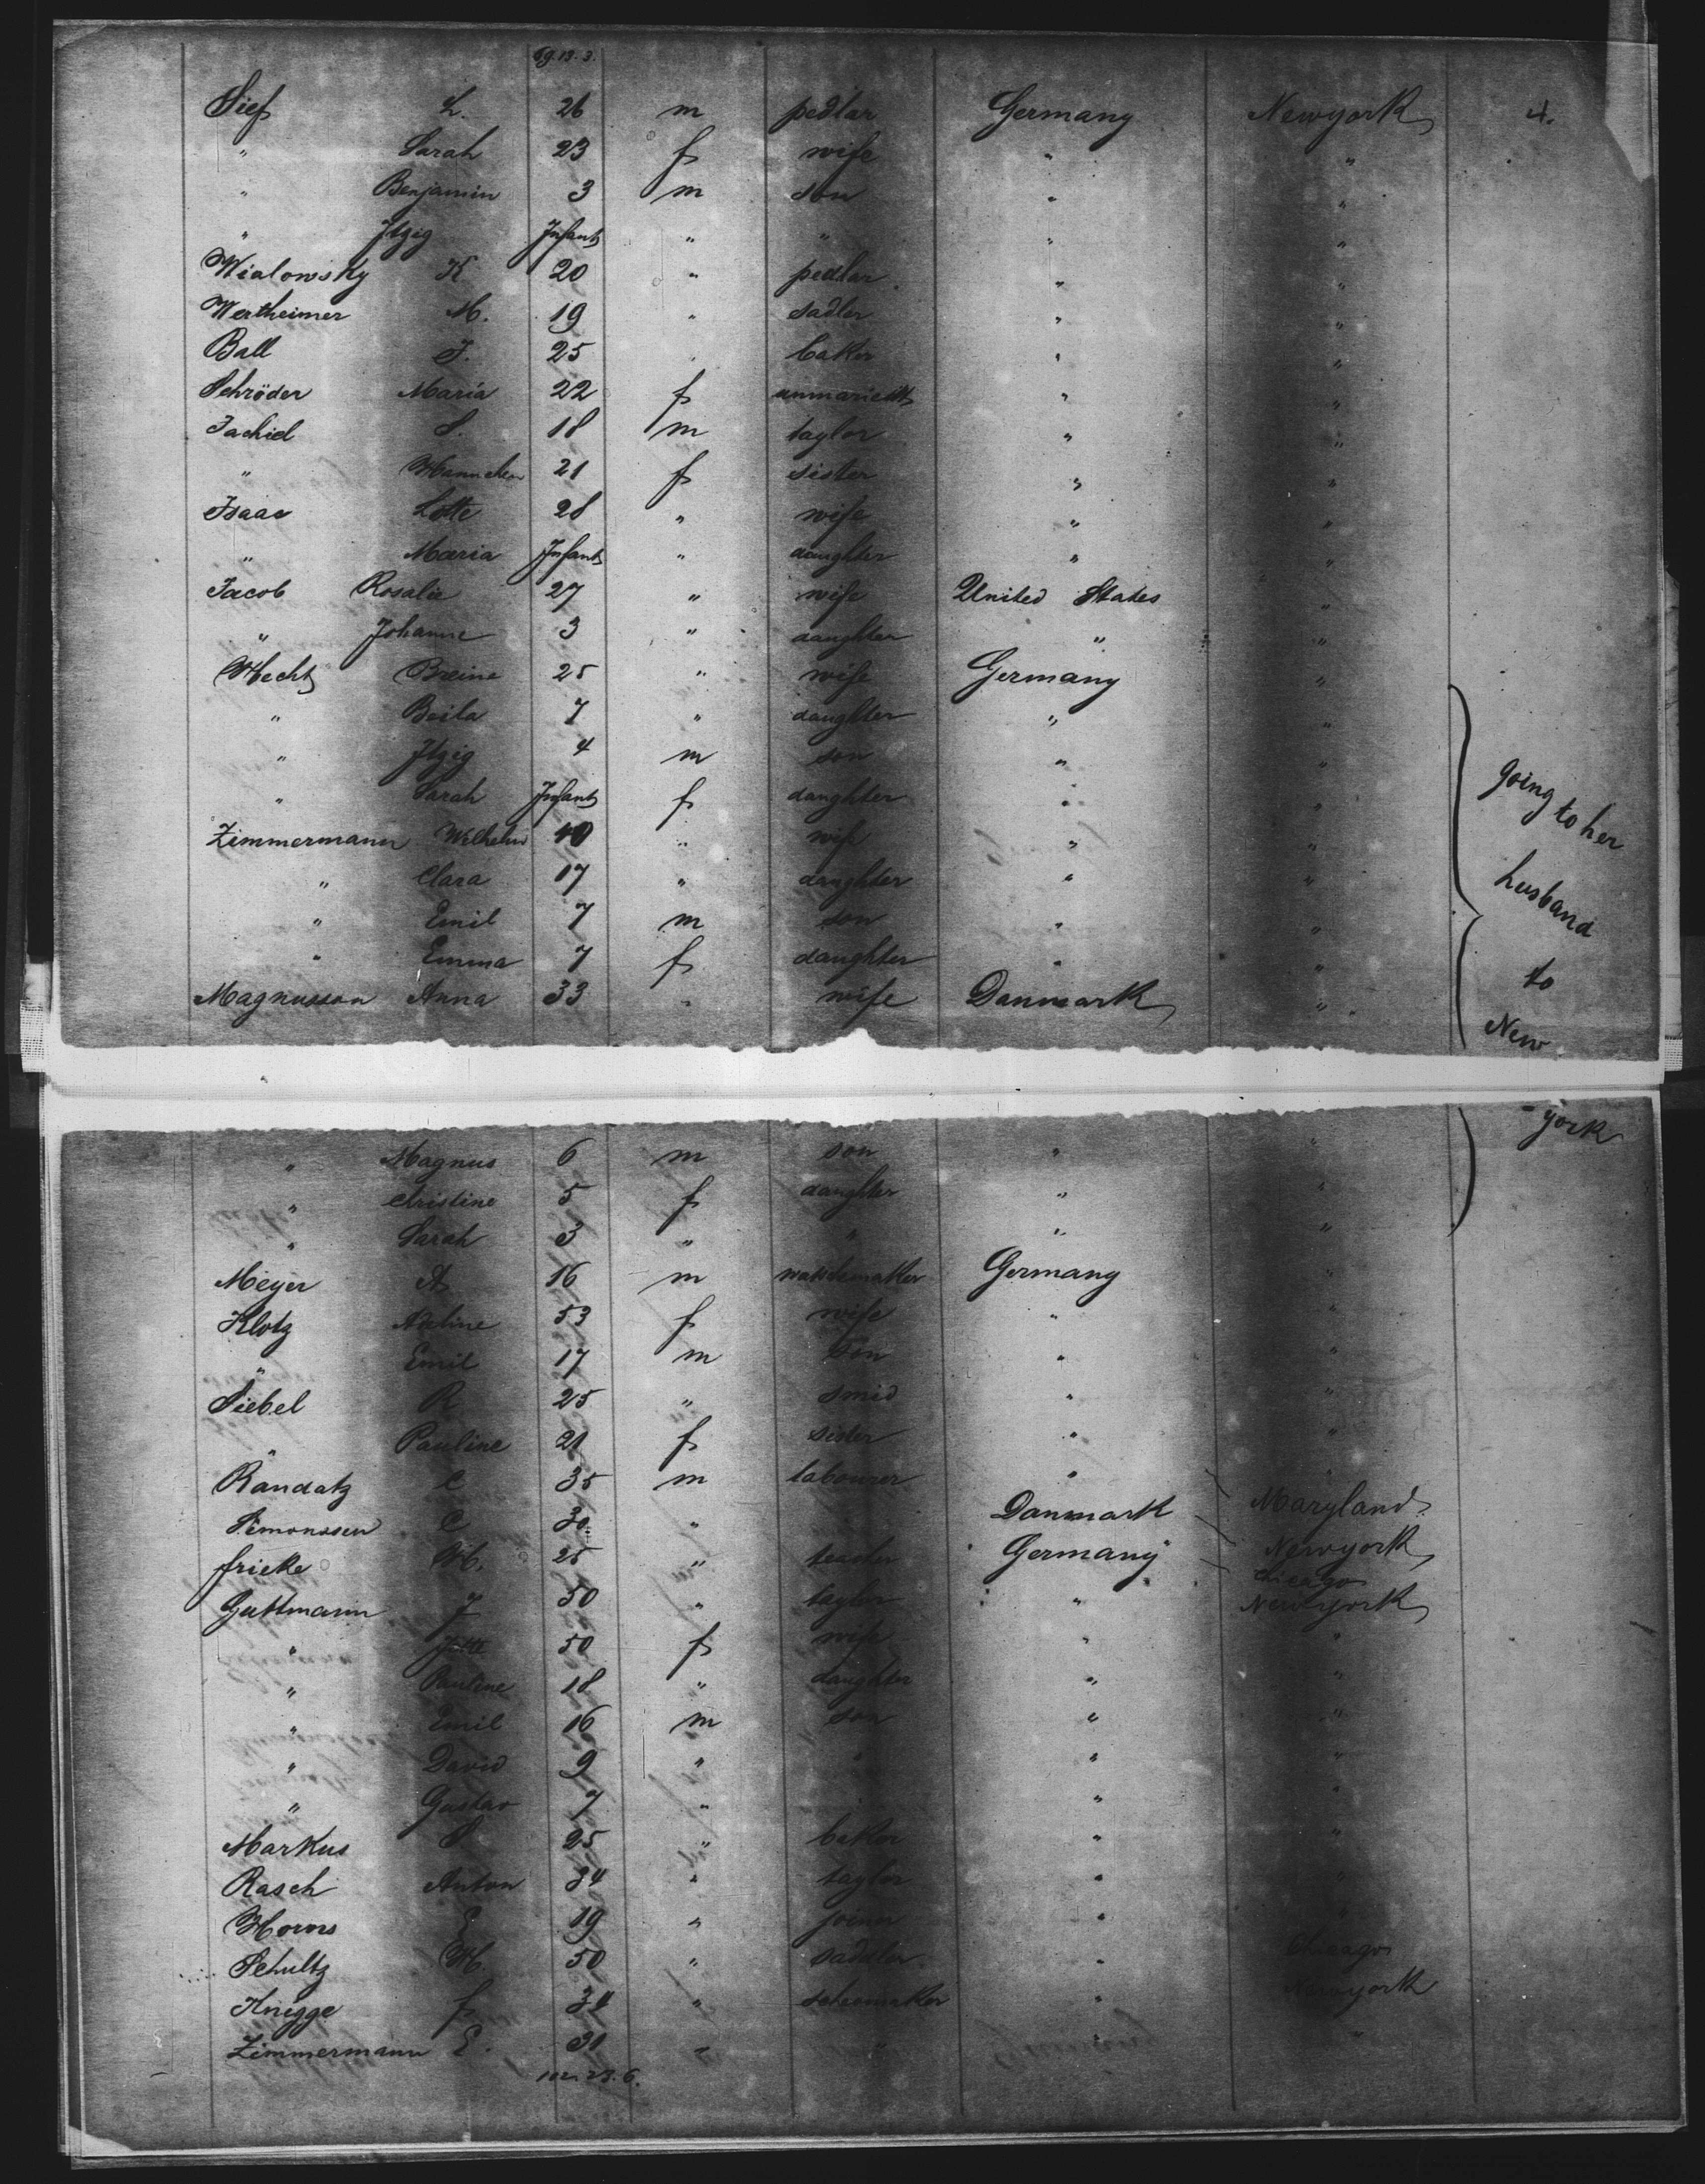 69. 13. 3.
Sief L. 26 m pedlar Germany Newyork 4.
" Sarah 23 f wife " "
" Benjamin 3 m son " "
" Itzig Infant " " " "
Wialowsky K 20 " pedlar " "
Wertheimer M. 19 " sadler " "
Ball J. 25 " baker " "
Schröder Maria 22 f " "
Jachiel S. 18 m taylor " "
" Hannchen 21 f sister " "
Isaac Lotte 28 " wife " "
" Maria Infant " daughter " "
Jacob Rosalie 27 " wife United States "
" Johanne 3 " daughter " "
Hecht Breine 25 " wife Germany "
" Beila 7 " daughter " "
" Itzig 4 m son " "
" Sarah Infant f daughter " " going to her
Zimmermann Wilhelm 40 " wife " "
" Clara 17 " daughter " " husband
" Emil 7 m son " "
" Emma 7 f daughter " " to
Magnusson Anna 33 " wife Danmark " New
- york
" Magnus 6 m son " "
" Christine 5 f daughter " "
" Sarah 3 " " " "
Meyer A 16 m watchmaker Germany "
Klotz Adeline 53 f wife " "
" Emil 17 m son " "
Siebel R 25 " smid " "
" Pauline 21 f sister " "
Randatz C 35 m labourer " "
Simonssen C 30 " Danmark Maryland
fricke H. 25 " Germany Newyork
Chicago
Guttmann J 50 " taylor " Newyork
" 50 f wife " "
" Pauline 18 " daughter " "
" Emil 16 m son " "
" David 9 " " " "
" Gustav 7 " " "
Markus S 25 " baker " "
Rasch Anton 34 " taylor " "
Horns E 19 " joiner " "
Schultz H. 50 " saddler " Chicago
Knigge f 34 " " Newyork
Zimmermann E. 30 " " " "
102. 23. 6.